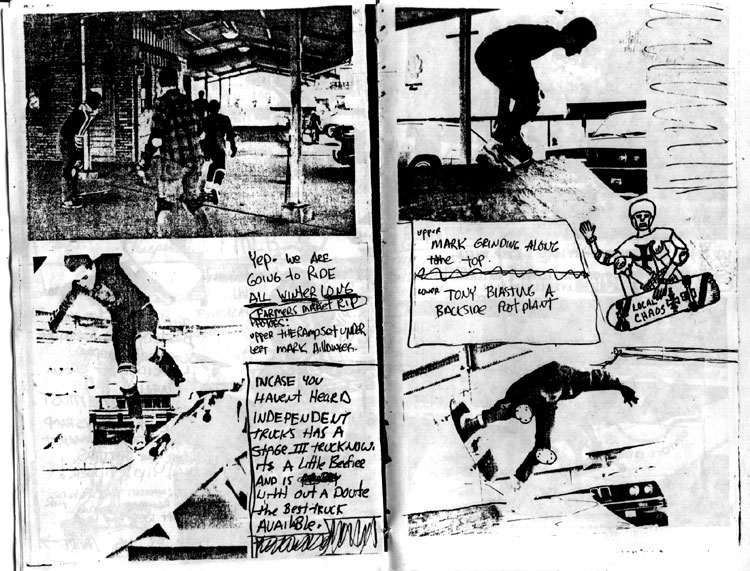 Yep. WE ARE
GOING to RIDE
ALL WINTER LONG
FARMERS MARKET RIP
PHOTOS:
UPPER the RAMP SET UP UNDER
LEFT MARK
INCASE YOU
HAVENT HEARD
INDEPENDENT
TRUCKS HAS A
STAGE III TRUCK NOW.
Its A Little Beefier
AND IS
WITH OUT A DOUTE
the BEST TRUCK
AVAILABLE.
UPPER
MARK GRINDING ALONG
the TOP.
LOWER TONY BLASTING A
BACKSIDE FOOTPLANT
LOCAL
CHAOS